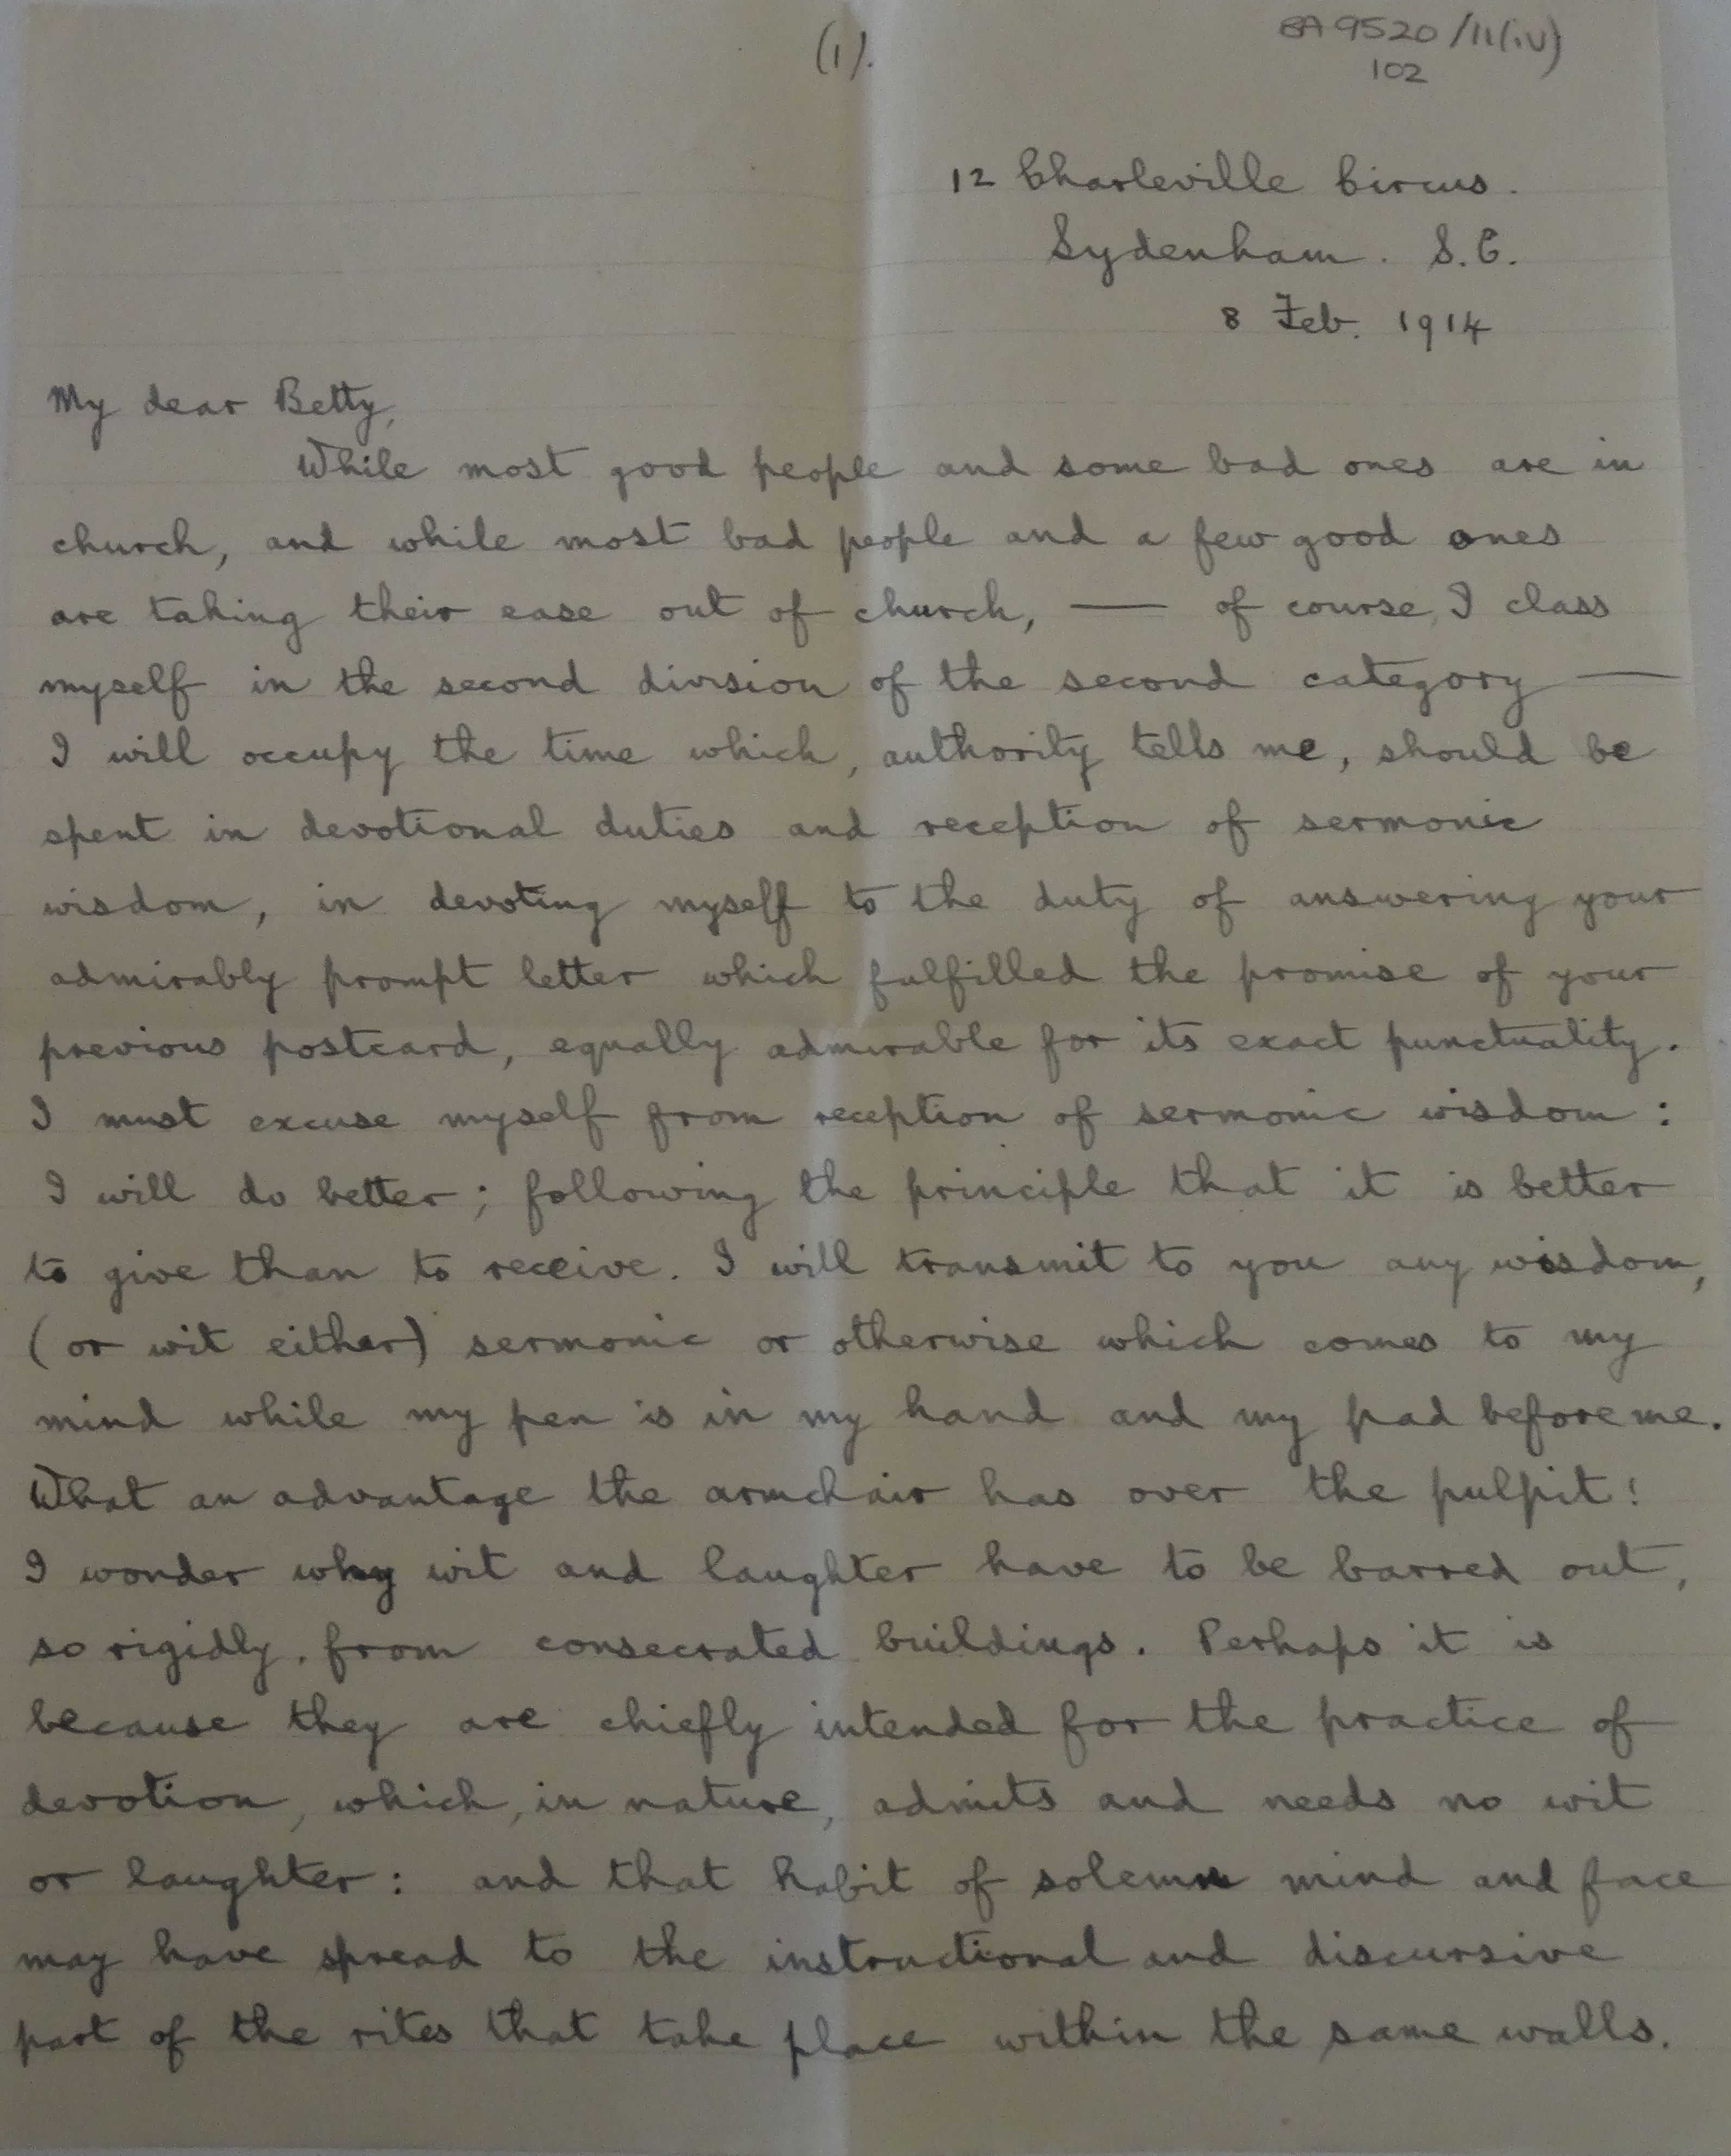 (1).
BA 9520/11(iv)
102
12 Charleville Circus.
Sydenham. S.E.
8 Feb. 1914
My dear Betty,
While most good people and some bad ones are in
church, and while most bad people and a few good ones
are taking their ease out of church, — of course, I class
myself in the second division of the second category —
I will occupy the time which, authority tells me, should be
spent in devotional duties and reception of sermonic
wisdom, in devoting myself to the duty of answering your
admirably prompt letter which fulfilled the promise of your
previous postcard, equally admirable for its exact punctuality.
I must excuse myself from reception of sermonic wisdom :
I will do better ; following the principle that it is better
to give than to receive. I will transmit to you any wisdom,
(or wit either) sermonic or otherwise which comes to my
mind while my pen is in my hand and my pad before me.
What an advantage the armchair has over the pulpit!
I wonder why wit and laughter have to be barred out,
so rigidly, from consecrated buildings. Perhaps it is
because they are chiefly intended for the practice of
devotion, which, in nature, admits and needs no wit
or laughter : and that habit of solemn mind and face
may have spread to the instructional and discursive
part of the rites that take place within the same walls.